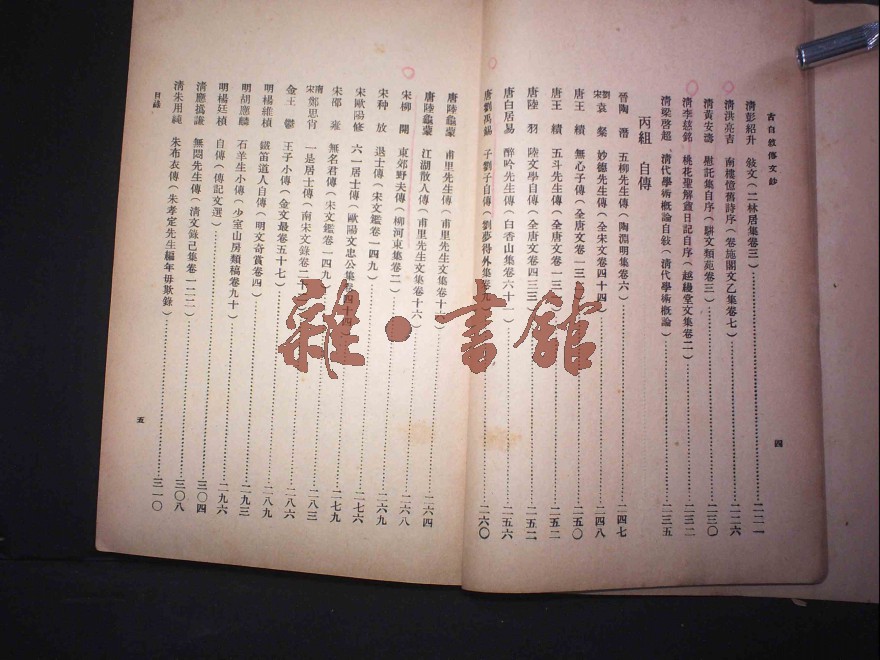 古自敘傳文鈔
清彭紹升　敍文(二林居集卷三)……二二一
清洪亮吉　南樓憶舊詩序(卷施閣文乙集卷七)……二二六
清黃安濤　慰託集自序(駢文類苑卷三)……二三〇
清李慈銘　桃花聖解盦日記自序(越縵堂文集卷二)……二三二
清梁啓超　清代學術概論自敍(清代學術概論)……二三五
丙組　自傳
晉陶　潛　五柳先生傳(陶淵明集卷六)……二四七
劉宋袁　粲　妙德先生傳(全宋文卷四十四)……二四八
唐王　績　無心子傳(全唐文卷一三
唐王　績　五斗先生傳(全唐文卷一三
……二五〇
……二五二
唐陸　羽　陸文學自傳(全唐文卷四三三)……二五二
唐白居易　醉吟先生傳(白香山集卷六十一)……二五六
唐劉禹錫　子劉子自傳(劉夢得外集卷九)……二六〇
四
唐陸龜蒙　甫里先生傳(甫里先生文集卷十六)……二六四
唐陸龜蒙　江湖散人傳(甫里先生文集卷十六)
宋柳　開　東郊野夫傳(柳河東集卷二)……二六八
宋种　放　退士傳(宋文鑑卷一四九)……二六九
宋歐陽修　六一居士傳(歐陽文忠公集卷四十四)……二七六
宋邵　雍　無名君傳(宋文鑑卷一四九)……二七九
南宋鄭思肖　一是居士傳(南宋文錄卷二十……二八三
金王　鬱　王子小傳(金文最卷五十七)……二八六
明楊維楨　鐵笛道人自傳(明文奇賞卷四)……二八九
明胡應麟　石羊生小傳(少室山房類稿卷九十)……二九三
明楊廷楨　自傳(傳記文選)……二九六
清應撝謙　無悶先生傳(清文錄己集卷一二二)……三〇四
清朱用純　朱布衣傳(朱孝定先生編年毋欺錄)……三〇八
……三一〇
目錄
五
雜·書館